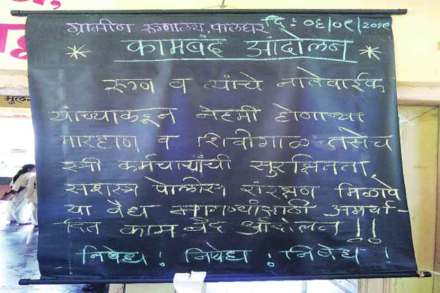 ग्रामीण रुग्णालय, पालघर दि : ०६/०९/२०१९
* कामबंद आंदोलन *
रुग्ण व त्यांचे नातेवाईक
यांच्याकडून नेहमी होणाऱ्या
मारहाण व शिवीगाळ तसेच
स्त्री कर्मचाऱ्यांची सुरक्षितता,
सशस्त्र पोलीस संरक्षण मिळणे
या वैध मागण्यांसाठी अमर्या-
दित काम बंद आंदोलन !!
निषेध ! निषेध ! निषेध !